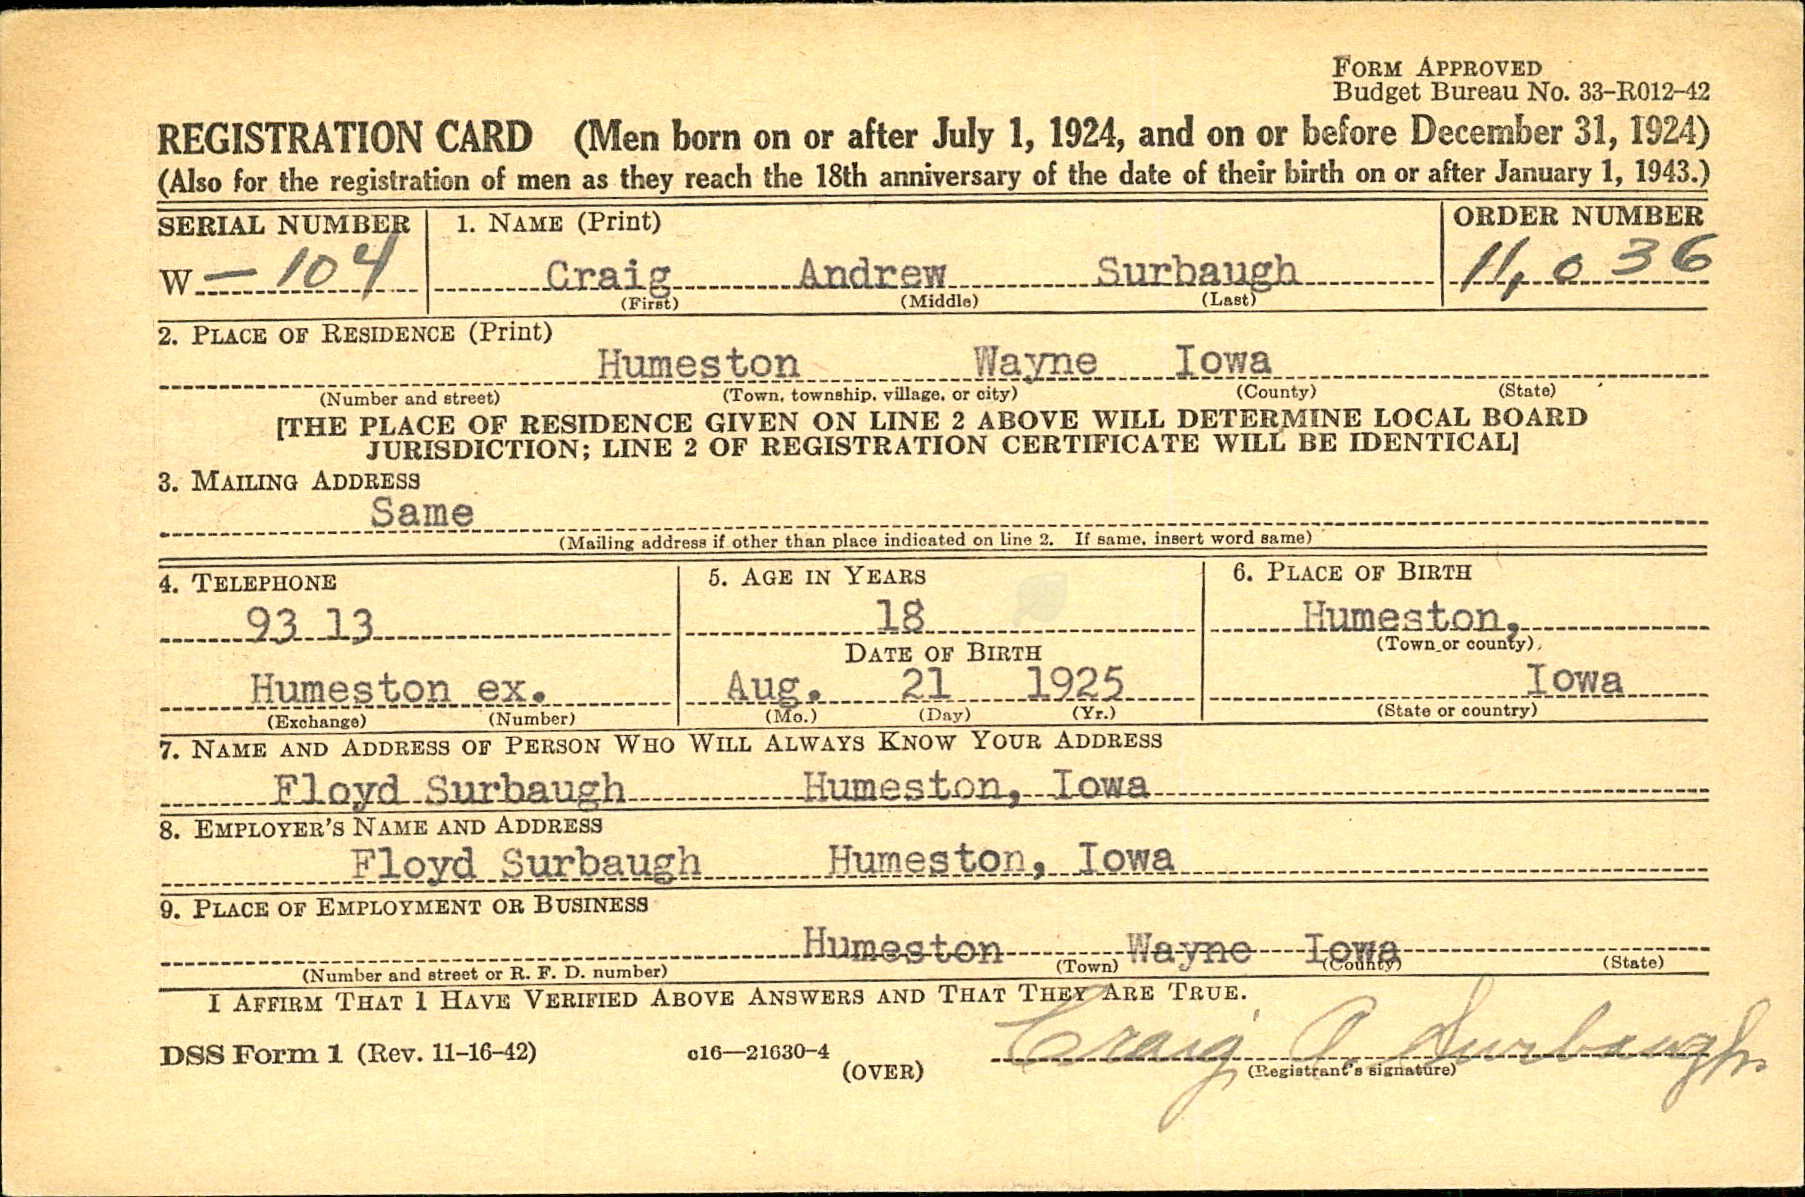 FORM APPROVED
Budget Bureau No. 33-R012-42
REGISTRATION CARD (Men born on or after July 1, 1924, and on or before December 31, 1924)
(Also for the registration of men as they reach the 18th anniversary of the date of their birth on or after January 1, 1943.)
SERIAL NUMBER 1. NAME (Print) ORDER NUMBER
W - 104 Craig Andrew Surbaugh 11,036
(First) (Middle) (Last)
2. PLACE OF RESIDENCE (Print)
Humeston Wayne Iowa
(Number and street) (Town, township, village, or city) (County) (State)
[THE PLACE OF RESIDENCE GIVEN ON LINE 2 ABOVE WILL DETERMINE LOCAL BOARD
JURISDICTION; LINE 2 OF REGISTRATION CERTIFICATE WILL BE IDENTICAL]
3. MAILING ADDRESS
Same
(Mailing address if other than place indicated on line 2. If same, insert word same)
4. TELEPHONE 5. AGE IN YEARS 6. PLACE OF BIRTH
93 13 18 Humeston,
(Town or county)
DATE OF BIRTH
Humeston ex. Aug. 21 1925 Iowa
(Exchange) (Number) (Mo.) (Day) (Yr.) (State or country)
7. NAME AND ADDRESS OF PERSON WHO WILL ALWAYS KNOW YOUR ADDRESS
Floyd Surbaugh Humeston, Iowa
8. EMPLOYER'S NAME AND ADDRESS
Floyd Surbaugh Humeston, Iowa
9. PLACE OF EMPLOYMENT OR BUSINESS
Humeston Wayne Iowa
(Number and street or R. F. D. number) (Town) (County) (State)
I AFFIRM THAT I HAVE VERIFIED ABOVE ANSWERS AND THAT THEY ARE TRUE.
Craig A Surbaugh
DSS Form 1 (Rev. 11-16-42) c16—21630-4 (OVER) (Registrant's signature)